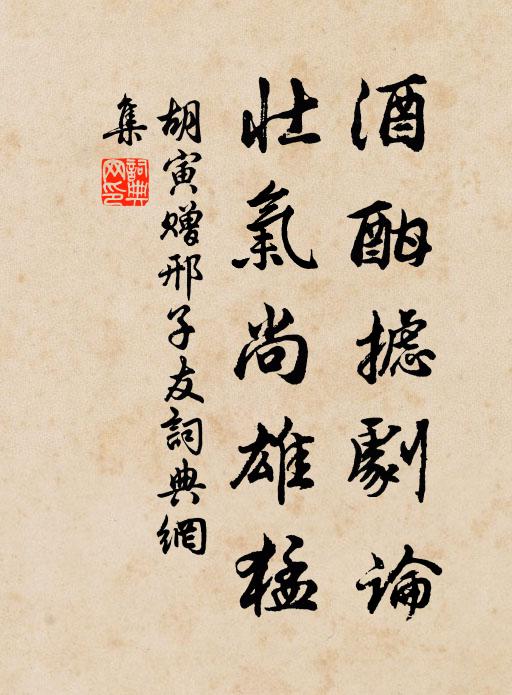 酒酣摅劇論
壯氣尚雄猛
胡寅贈邢子友詞典網
集
詞典網印